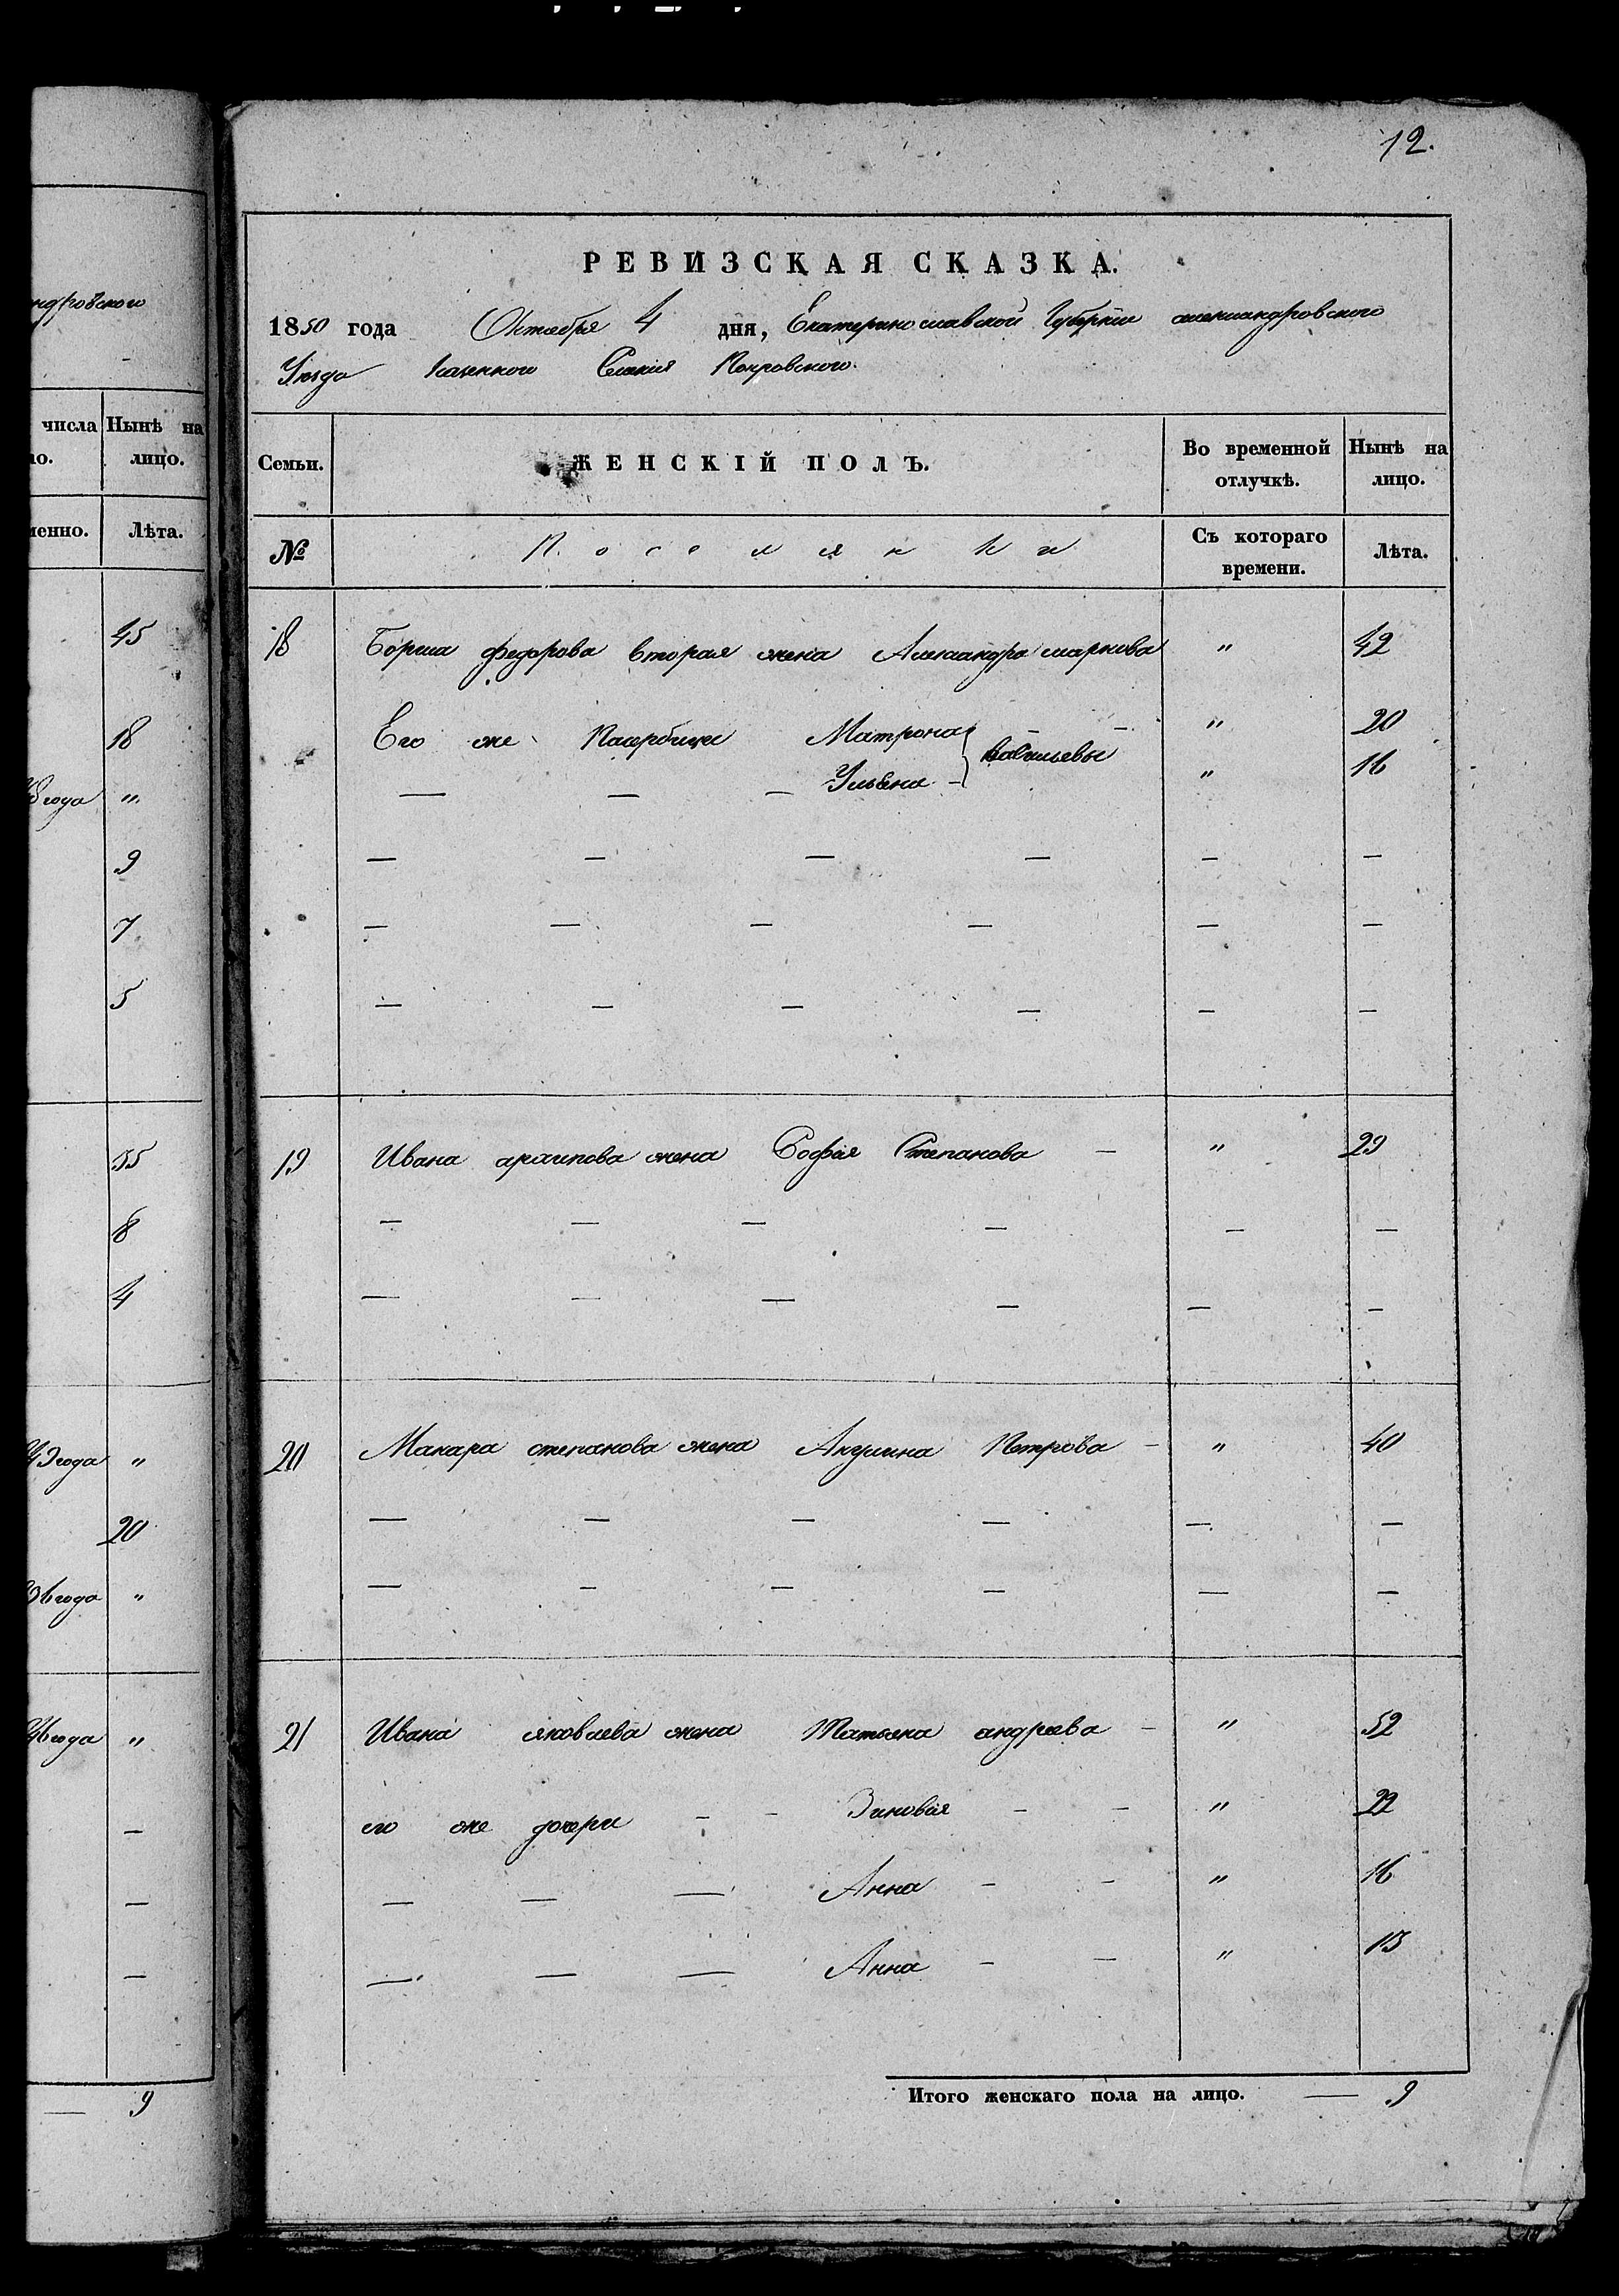 12.
РЕВИЗСКАЯ СКАЗКА.
1850 года Октября 4 дня, Екатеринославской Губернии александровского
Уезда казенного Селения Покровского.
ндровского
числа Нынѣ на
ло. лицо.
менно. Лѣта.
45
18
8 года "
9
7
5
35
8
4
43 года "
20
36 года "
46 года "
9
Семьи. ЖЕНСКІЙ ПОЛЪ. Во временной отлучкѣ. Нынѣ на лицо.
№ Поселянки Съ котораго времени. Лѣта.
18 федорова вторая жена Александра маркова " 42
Его же Матрона " 20
Ульяна васильевы " 16
19 Ивана архипова жена Софія Степанова " 29
20 Макара степанова жена Акулина Петрова " 40
21 Ивана яковлева жена Татьяна андреева " 52
его же дочери Зиновія " 22
Анна " 16
Анна " 13
Итого женскаго пола на лицо. 9